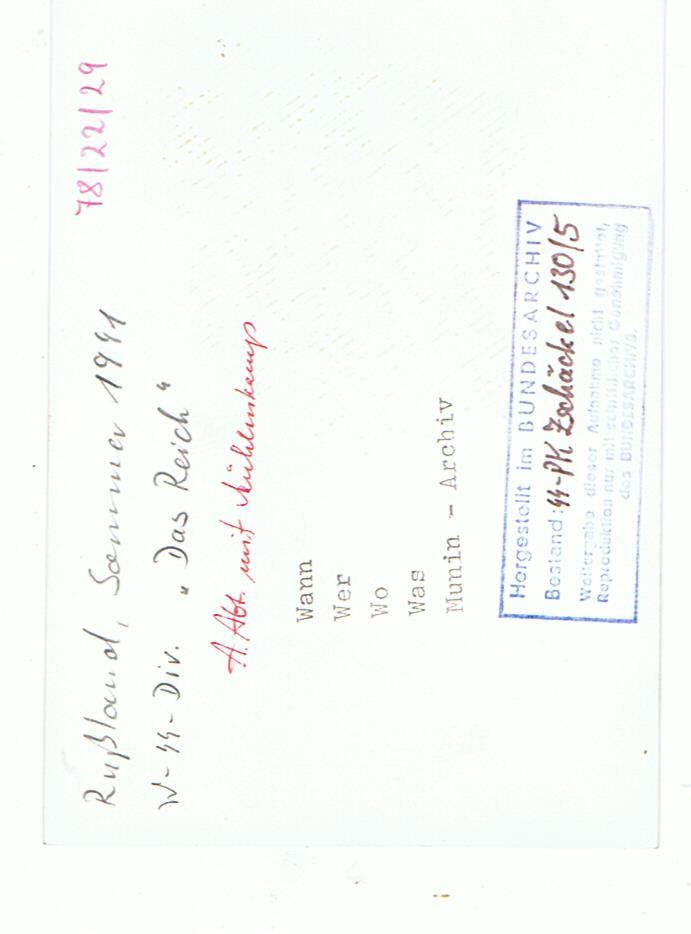 78/22/29
Rußland, Sommer 1941
W-SS-Div. „Das Reich“
A. Abt. mit Mühlenkamp
Wann
Wer
Wo
Was
Munin - Archiv
Hergestellt im BUNDESARCHIV
Bestand: SS-PK Zschäckel 130/5
Weitergabe dieser Aufnahme nicht gestattet,
Reproduktion nur mit schriftlicher Genehmigung
des BUNDESARCHIVS.